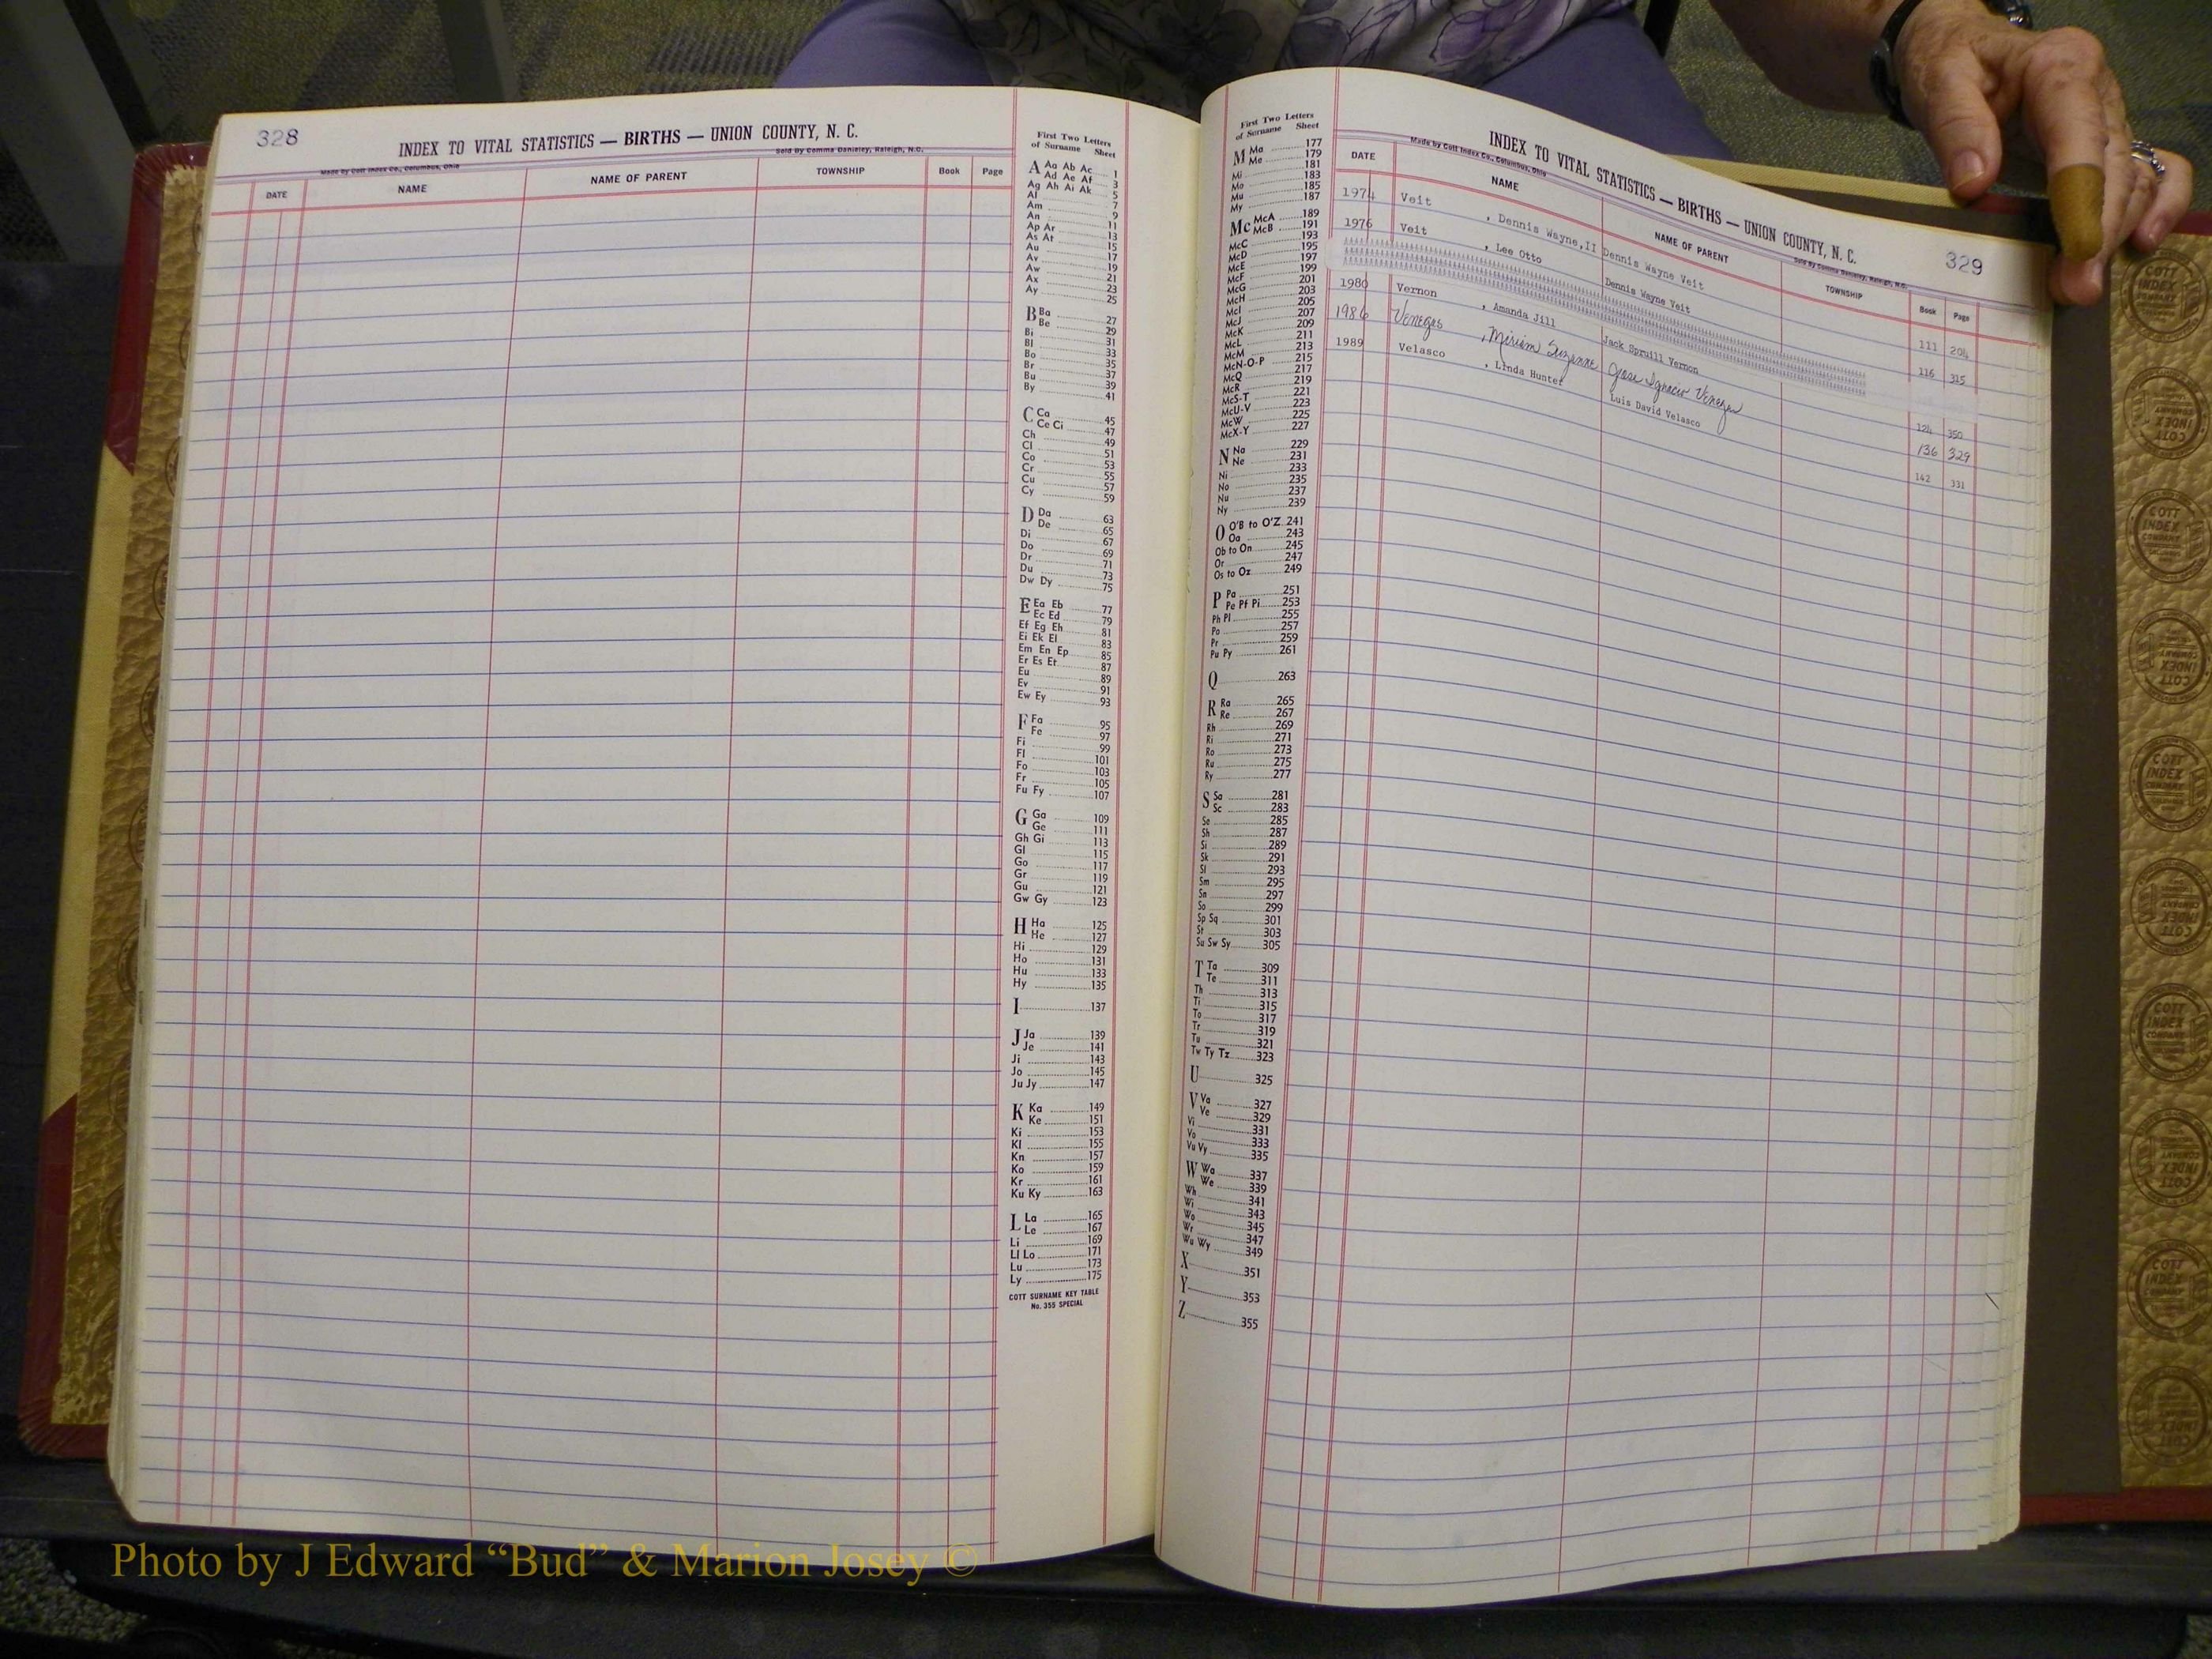 328
INDEX TO VITAL STATISTICS — BIRTHS — UNION COUNTY, N. C.
Made by Cott Index Co., Columbus, Ohio
Sold By Comma Danieley, Raleigh, N.C.
DATE NAME NAME OF PARENT TOWNSHIP Book Page
First Two Letters
of Surname Sheet
A Aa Ab Ac 1
Ad Ae Af 3
Ag Ah Ai Ak 5
Al 7
Am 9
An 11
Ap Ar 13
As At 15
Au 17
Av 19
Aw 21
Ax 23
Ay 25
B Ba 27
Be 29
Bi 31
Bl 33
Bo 35
Br 37
Bu 39
By 41
C Ca 45
Ce Ci 47
Ch 49
Cl 51
Co 53
Cr 55
Cu 57
Cy 59
D Da 63
De 65
Di 67
Do 69
Dr 71
Du 73
Dw Dy 75
E Ea Eb 77
Ec Ed 79
Ef Eg Eh 81
Ei Ek El 83
Em En Ep 85
Er Es Et 87
Eu 89
Ev 91
Ew Ey 93
F Fa 95
Fe 97
Fi 99
Fl 101
Fo 103
Fr 105
Fu Fy 107
G Ga 109
Ge 111
Gh Gi 113
Gl 115
Go 117
Gr 119
Gu 121
Gw Gy 123
H Ha 125
He 127
Hi 129
Ho 131
Hu 133
Hy 135
I 137
J Ja 139
Je 141
Ji 143
Jo 145
Ju Jy 147
K Ka 149
Ke 151
Ki 153
Kl 155
Kn 157
Ko 159
Kr 161
Ku Ky 163
L La 165
Le 167
Li 169
Ll Lo 171
Lu 173
Ly 175
COTT SURNAME KEY TABLE
No. 355 SPECIAL
First Two Letters
of Surname Sheet
M Ma 177
Me 179
Mi 181
Mo 183
Mu 185
My 187
Mc McA 189
McB 191
McC 193
McD 195
McE 197
McF 199
McG 201
McH 203
McI 205
McJ 207
McK 209
McL 211
McM 213
McN-O-P 215
McQ 217
McR 219
McS-T 221
McU-V 223
McW 225
McX-Y 227
N Na 229
Ne 231
Ni 233
No 235
Nu 237
Ny 239
O O'B to O'Z 241
Oa 243
Ob to On 245
Or 247
Os to Oz 249
P Pa 251
Pe Pf Pi 253
Ph Pl 255
Po 257
Pr 259
Pu Py 261
Q 263
R Ra 265
Re 267
Rh 269
Ri 271
Ro 273
Ru 275
Ry 277
S Sa 281
Sc 283
Se 285
Sh 287
Si 289
Sk 291
Sl 293
Sm 295
Sn 297
So 299
Sp Sq 301
St 303
Su Sw Sy 305
T Ta 309
Te 311
Th 313
Ti 315
To 317
Tr 319
Tu 321
Tw Ty Tz 323
U 325
V Va 327
Ve 329
Vi 331
Vo 333
Vu Vy 335
W Wa 337
We 339
Wh 341
Wi 343
Wo 345
Wr 347
Wu Wy 349
X 351
Y 353
Z 355
INDEX TO VITAL STATISTICS — BIRTHS — UNION COUNTY, N. C.
329
Made by Cott Index Co., Columbus, Ohio
Sold By Comma Danieley, Raleigh, N.C.
DATE NAME NAME OF PARENT TOWNSHIP Book Page
1974 Veit , Dennis Wayne,II Dennis Wayne Veit 111 204
1976 Veit , Lee Otto Dennis Wayne Veit 116 315
1980 Vernon , Amanda Jill Jack Spruill Vernon 124 350
1986 Venegas , Miriam Suzanne Jose Ignacio Venegas 136 329
1989 Velasco , Linda Hunter Luis David Velasco 142 331
COTT INDEX COMPANY
Photo by J Edward “Bud” & Marion Josey ©